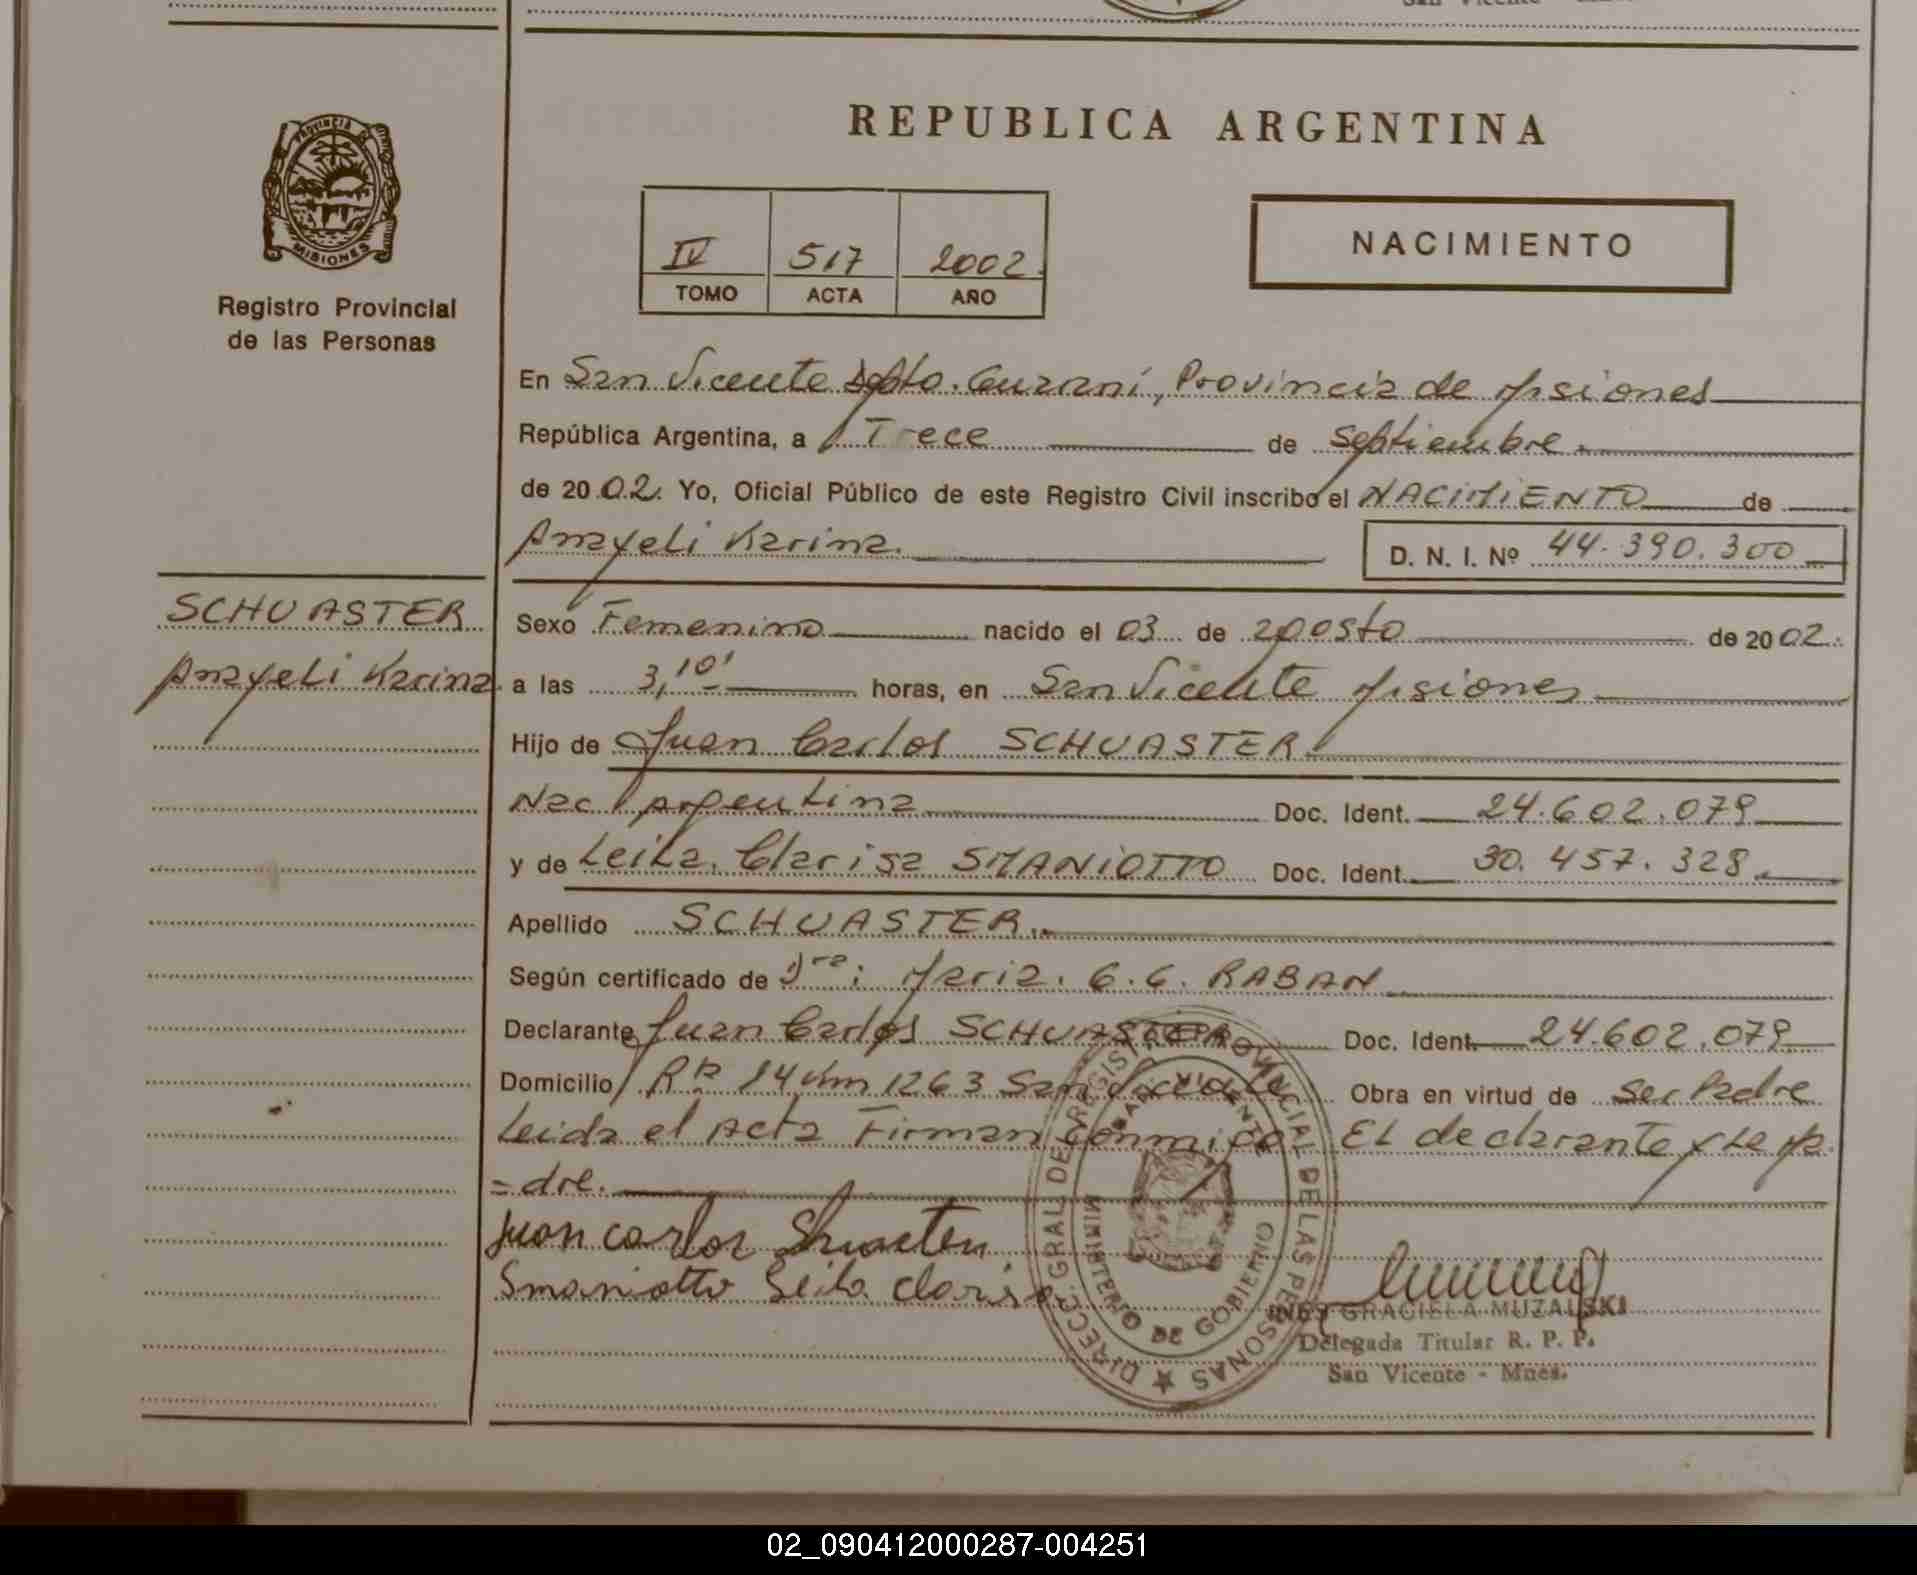 REPUBLICA ARGENTINA
PROVINCIA DE
MISIONES
Registro Provincial
de las Personas
IV 517 2002.
TOMO ACTA AÑO
NACIMIENTO
En San Vicente Dpto. Guaraní, Provincia de Misiones
República Argentina, a Trece de Septiembre.
de 2002. Yo, Oficial Público de este Registro Civil inscribo el NACIMIENTO de
Anayeli Karina.
D. N. I. Nº 44.390.300
SCHUASTER
Anayeli Karina.
Sexo Femenino nacido el 03 de agosto de 2002.
a las 3,10' horas, en San Vicente Misiones
Hijo de Juan Carlos SCHUASTER
Nac Argentina Doc. Ident. 24.602.079
y de Leila. Clarisa SMANIOTTO Doc. Ident. 30.457.328
Apellido SCHUASTER.
Según certificado de Dra: Maria. G. G. RABAN
Declarante Juan Carlos SCHUASTER Doc. Ident. 24.602.079
Domicilio Rta 14 Km 1263 San Vicente Obra en virtud de Ser Padre
Leida el Acta Firman conmigo EL declarante y La Ma
=dre.
Juan carlos Shuaster
Smaniotto Leila clarisa
DIRECC. GRAL DE REGISTRO PROVINCIAL DE LAS PERSONAS
MINISTERIO DE GOBIERNO
SAN VICENTE
INES GRACIELA MUZALSKI
Delegada Titular R. P. P.
San Vicente - Mnes.
02_090412000287-004251